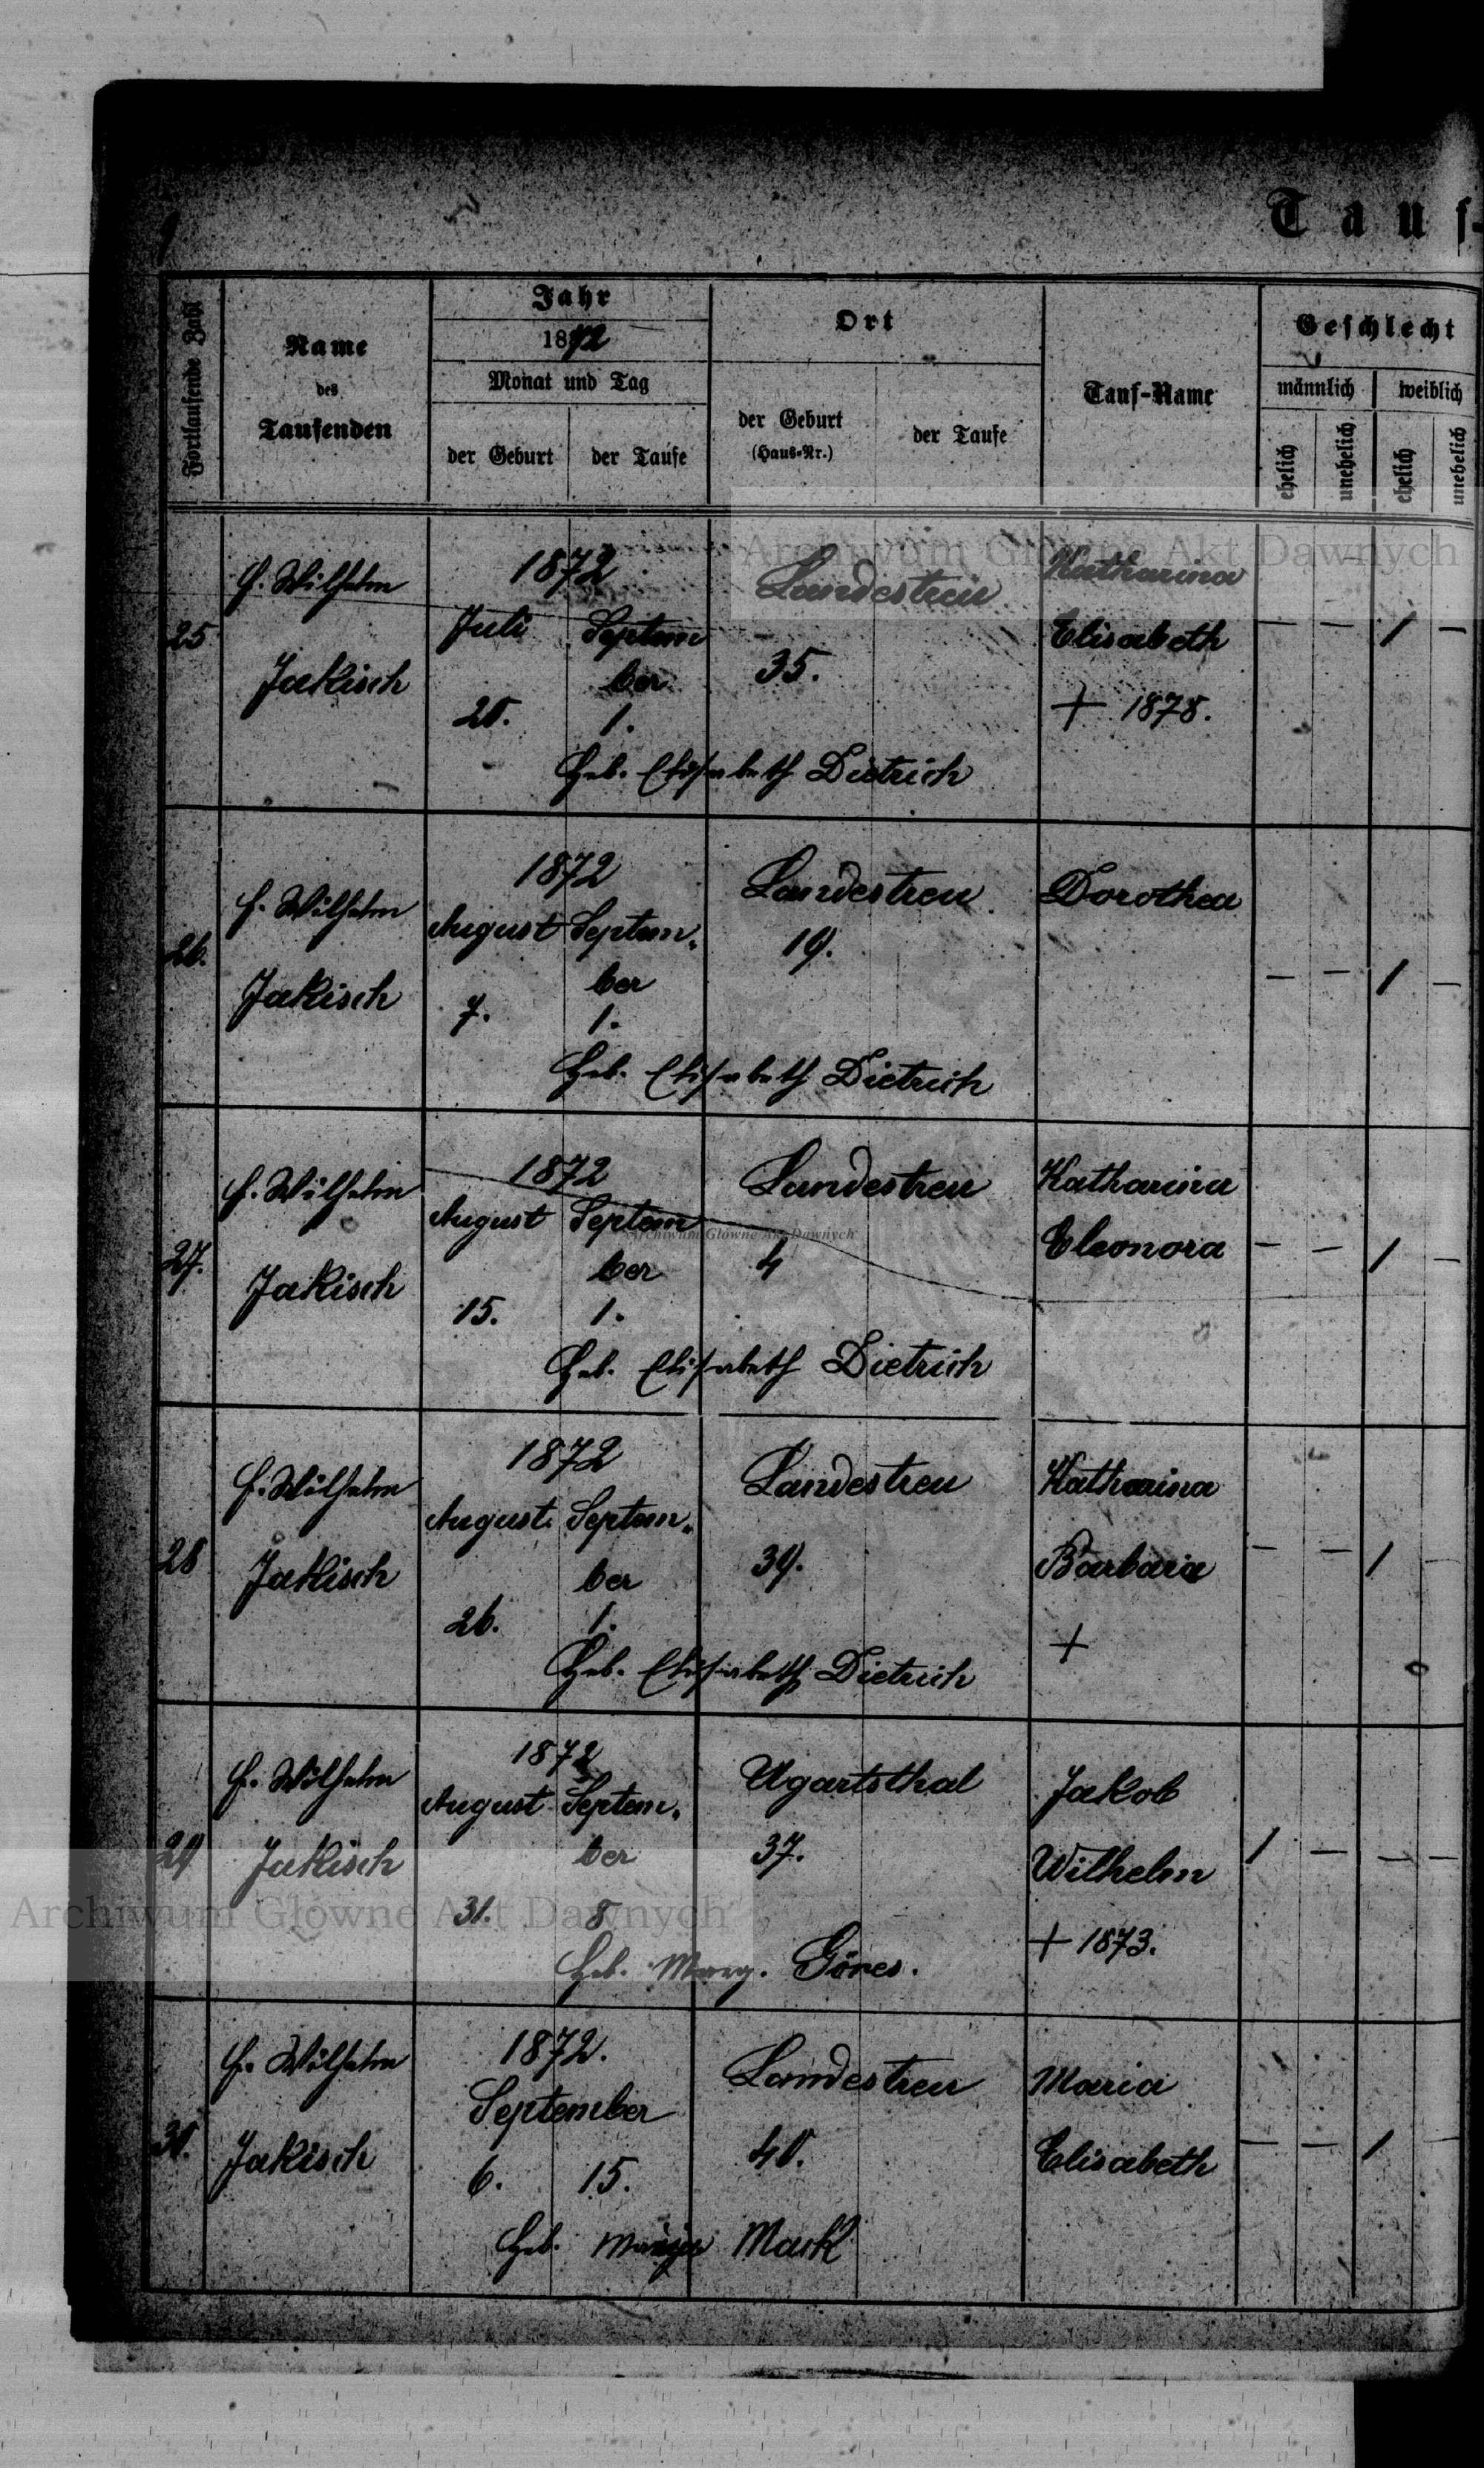 Tauf-
Fortlaufende Zahl
Name
des
Taufenden
Jahr
1872
Monat und Tag
der Geburt
der Taufe
Ort
der Geburt
(Haus-Nr.)
der Taufe
Tauf-Name
Geschlecht
männlich
weiblich
ehelich
unehelich
ehelich
unehelich
25
Wilhelm
Jakisch
1872
Juli
20.
Septem
ber
1.
Landestreu
35.
Katharina
Elisabeth
+ 1878.
— — / —
Heb. Elisabeth Dietrich
26.
Wilhelm
Jakisch
1872
August
7.
Septem,
ber
1.
Landestreu
19.
Dorothea
— — / —
Heb. Elisabeth Dietrich
27.
Wilhelm
Jakisch
1872
August
15.
Septem
ber
1.
Landestreu
4
Katharina
Eleonora
— — / —
Heb. Elisabeth Dietrich
28
Wilhelm
Jakisch
1872
August
26.
Septem,
ber
1.
Landestreu
39.
Katharina
Barbara
+
— — / —
Heb. Elisabeth Dietrich
29
Wilhelm
Jakisch
1872
August
31.
Septem,
ber
8
Ugartsthal
37.
Jakob
Wilhelm
+ 1873.
/ — — —
Heb. Marg. Göres.
30.
Wilhelm
Jakisch
1872.
September
6.
15.
Landestreu
40.
Maria
Elisabeth
— — / —
Heb. Mauk
Archiwum Główne Akt Dawnych
Archiwum Główne Akt Dawnych
Archiwum Główne Akt Dawnych